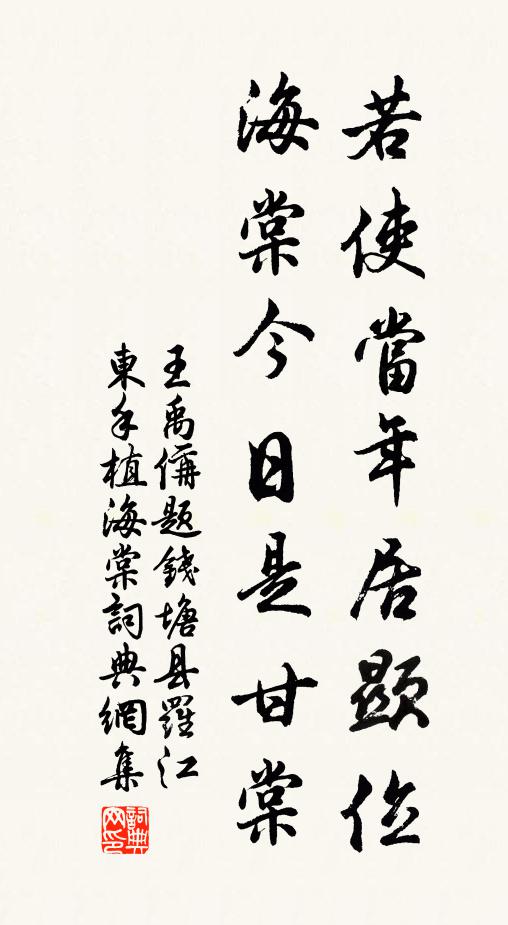 若使當年居顯位
海棠今日是甘棠
王禹偁題錢塘县羅江
東手植海棠詞典網集
詞典网印